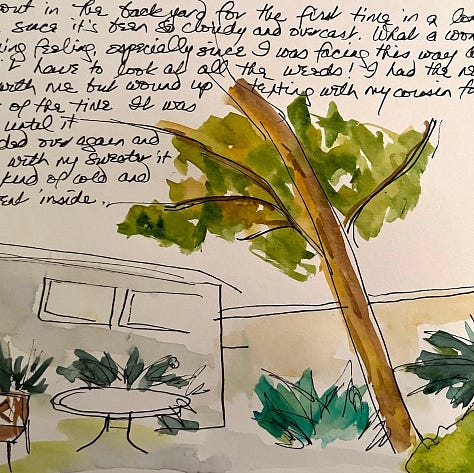 out in the back yard for the first time in a
since it's been so cloudy and overcast. What a
feeling, especially since I was facing this way
have to look at all the weeds! I had the
with me but wound up texting with my cousin
of the time It was
until it
ded over again and
with my sweater it
kind of cold and
ent inside...